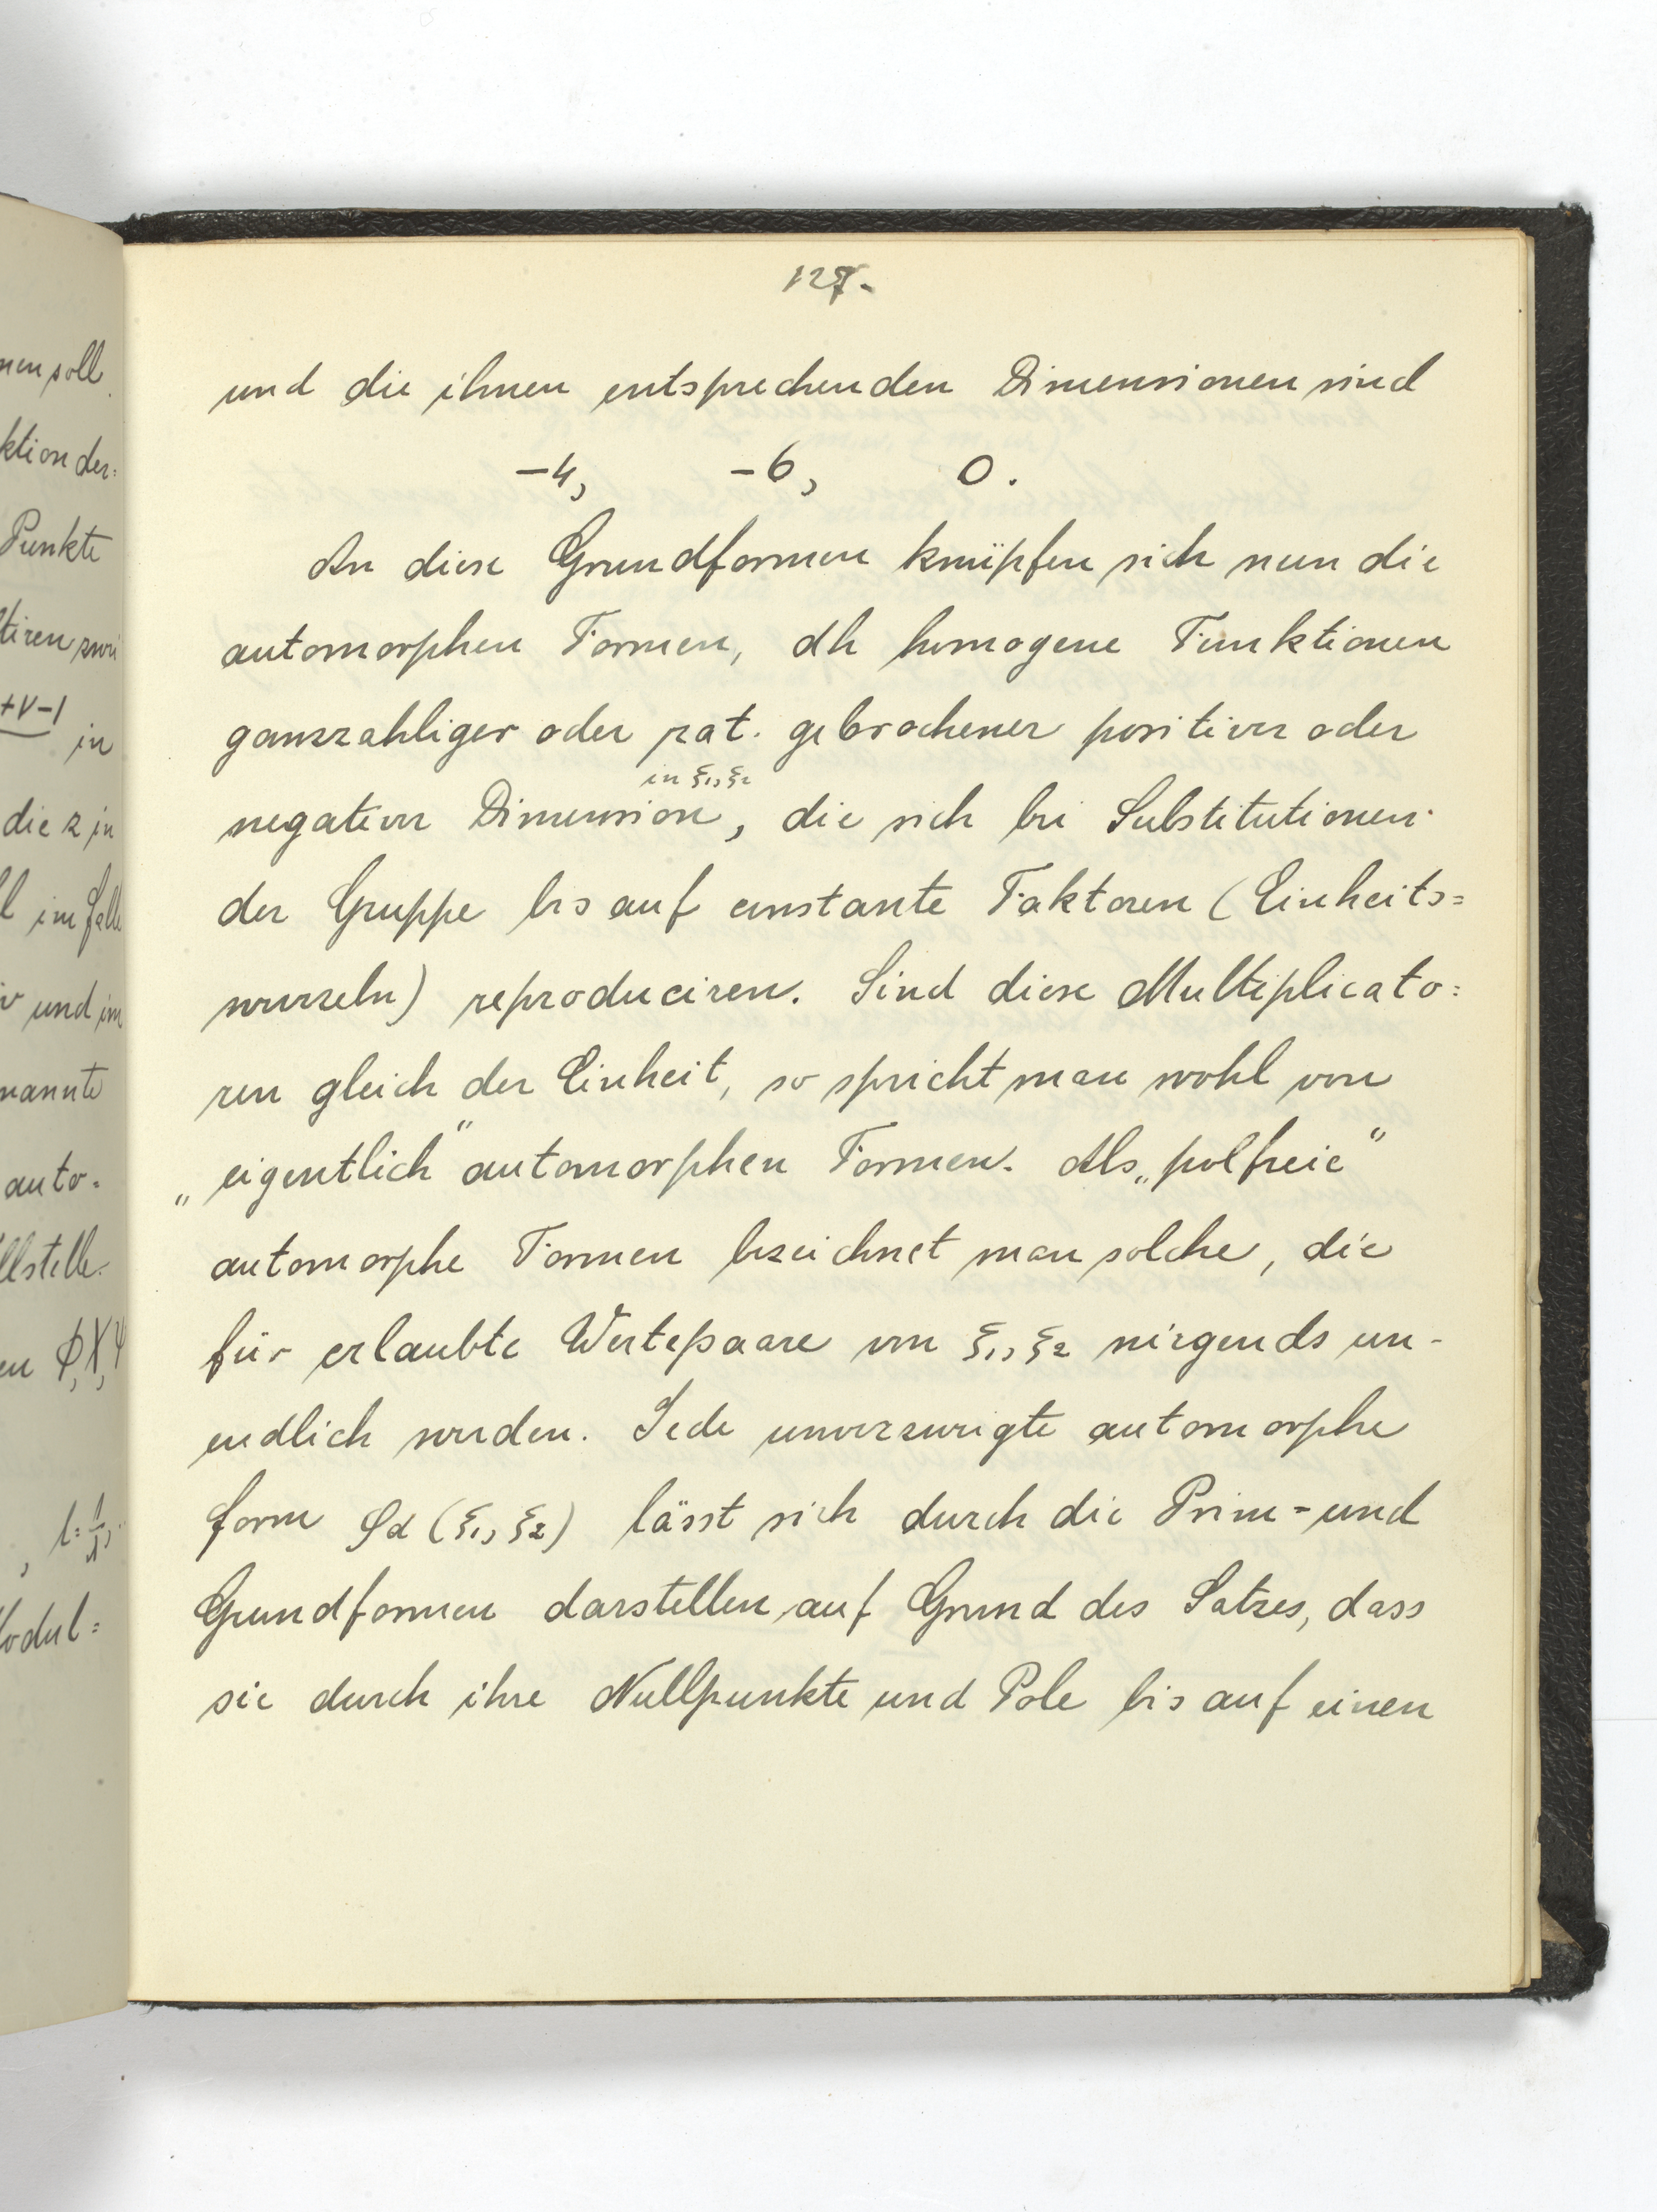 127.
und die ihnen entsprechenden Dimensionen sind
-4, -6, 0.
An diese Grundformen knüpfen sich nun die
automorphen Formen, dh homogene Funktionen
ganzzahliger oder rat. gebrochener positiver oder
in ξ₁, ξ₂
negativer Dimension, die sich bei Substitutionen
der Gruppe bis auf constante Faktoren (Einheits=
wurzeln) reproduciren. Sind diese Multiplicato=
ren gleich der Einheit, so spricht man wohl von
„eigentlich“ automorphen Formen. Als „polfreie“
automorphe Formen bezeichnet man solche, die
für erlaubte Wertepaare von ξ₁, ξ₂ nirgends un-
endlich werden. Jede unverzweigte automorphe
Form φd (ξ₁, ξ₂) lässt sich durch die Prim= und
Grundformen darstellen auf Grund des Satzes, dass
sie durch ihre Nullpunkte und Pole bis auf einen